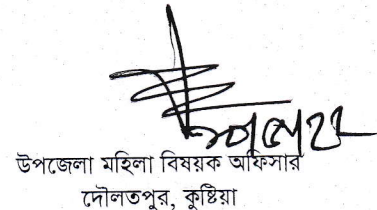 উপজেলা মহিলা বিষয়ক অফিসার
দৌলতপুর, কুষ্টিয়া